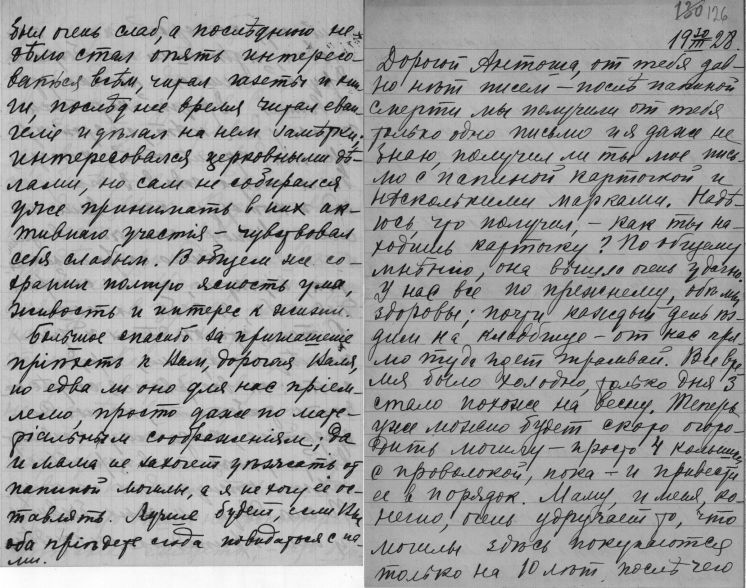 был очень слаб, а послѣднюю не-
дѣлю стал опять интересо-
ваться всѣм, читал газеты и кни-
ги, послѣднее время читал еван-
геліе и дѣлал на нем замѣтки,
интересовался церковными дѣ-
лами, но сам не собирался
уже принимать в них ак-
тивнаго участія – чувствовал
себя слабым. В общем же со-
хранил полную ясность ума,
живость и интерес к жизни.
Большое спасибо за приглашение
пріѣхать к Вам, дорогая Валя,
но едва ли оно для нас пріем-
лемо, просто даже по мате-
ріальным соображеніям; да
и мама не захочет уѣзжать от
папиной могилы, а я не хочу ее ос-
тавлять. Лучше будет, если Вы
оба пріѣдете сюда повидаться с на-
ми.
126
19 30/III 28.
Дорогой Антоша, от тебя дав-
но нѣт писем – послѣ папиной
смерти мы получили от тебя
только одно письмо и я даже не
знаю, получил ли ты мое пись-
мо с папиной карточкой и
нѣсколькими марками. Надѣ-
юсь, что получил, – как ты на-
ходишь карточку? По общему
мнѣнію, она вышла очень удачно.
У нас все по прежнему, обѣ мы
здоровы; почти каждый день хо-
дим на кладбище – от нас пря-
мо туда идет трамвай. Все вре-
мя было холодно, только дня 3
стало похоже на весну. Теперь
уже можно будет скоро огоро-
дить могилу – просто 4 колышка
с проволокой, пока – и привести
ее в порядок. Маму, и меня, ко-
нечно, очень удручает то, что
могилы здѣсь покупаются
только на 10 лѣт, послѣ чего